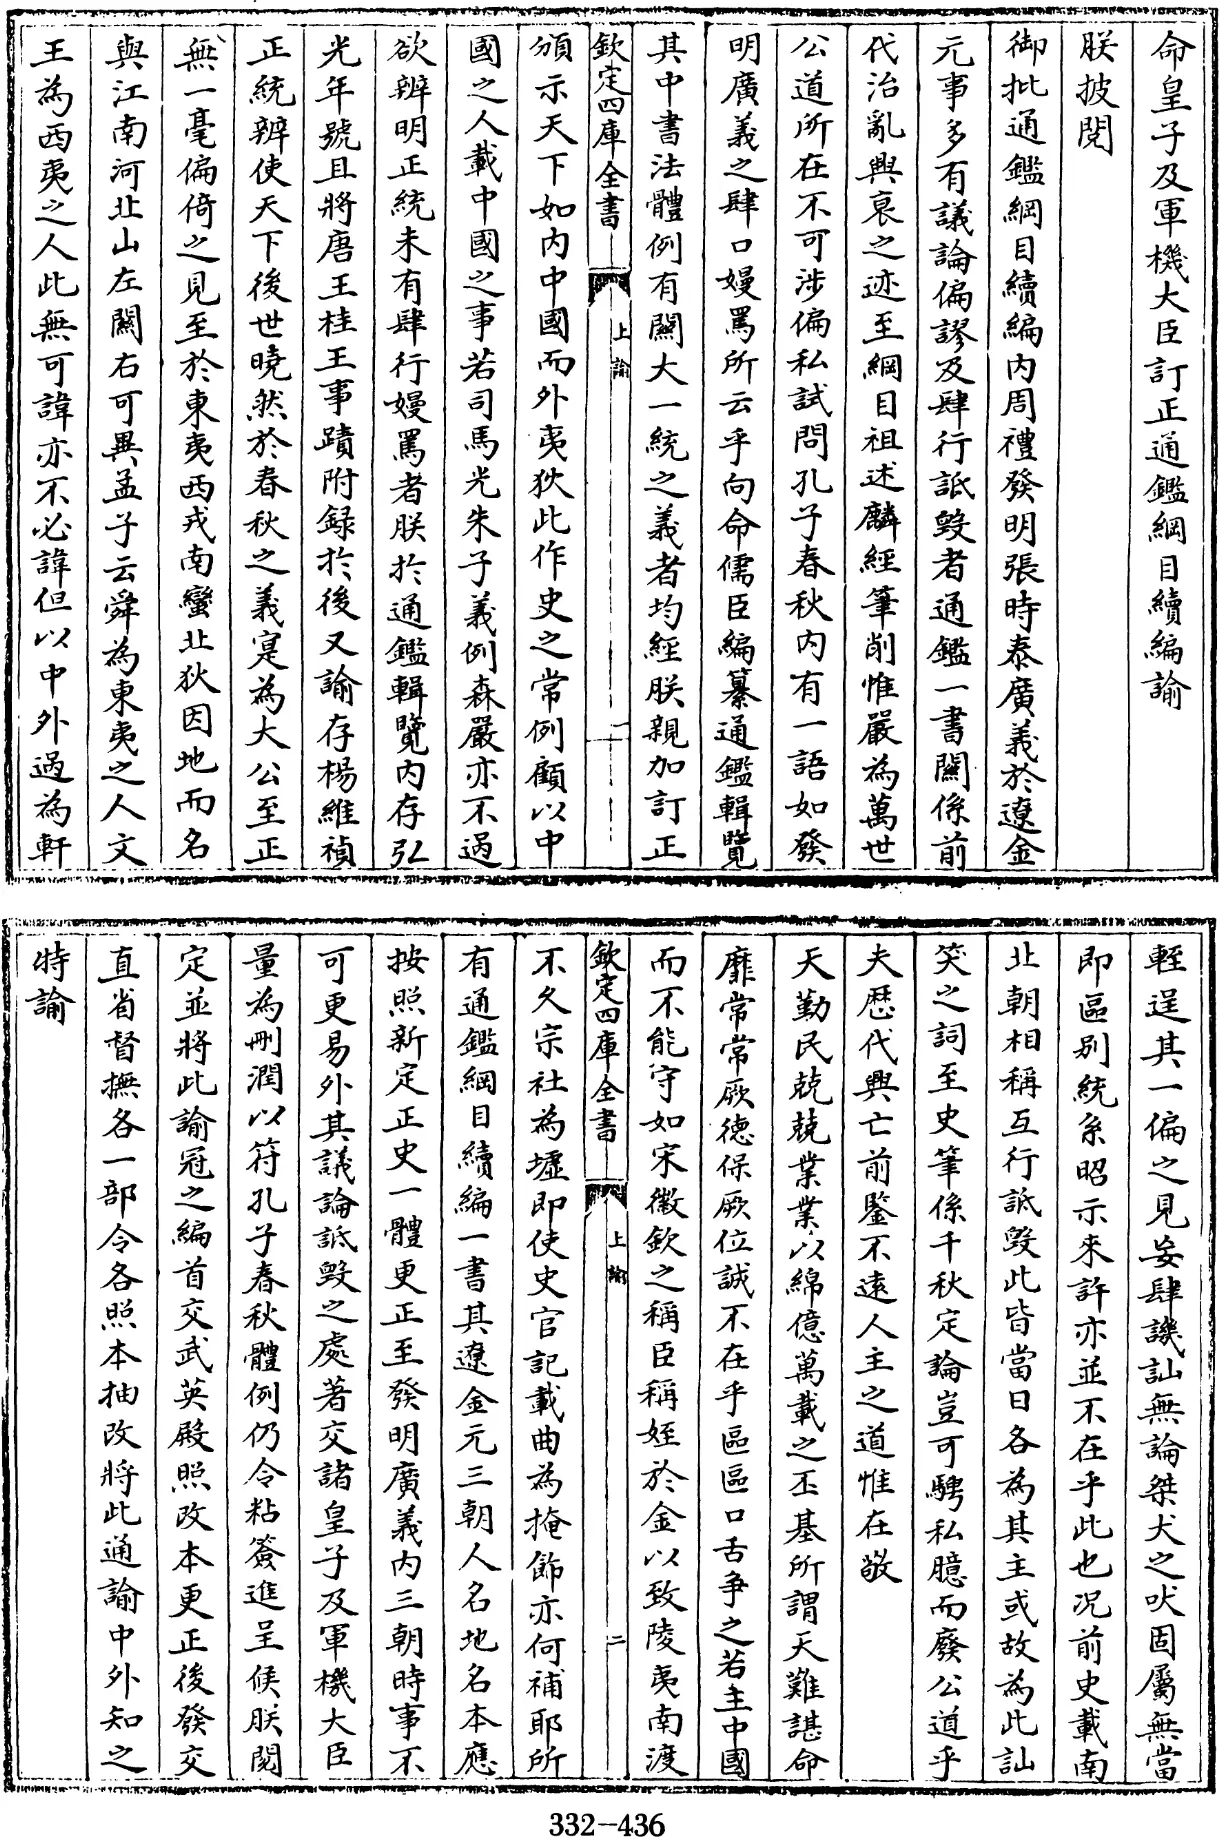 命皇子及軍機大臣訂正通鑑綱目續編諭
朕披閱
御批通鑑綱目續編内周禮發明張時泰廣義於遼金
元事多有議論偏謬及肆行詆毀者通鑑一書關係前
代治亂興衰之迹至綱目祖述麟經筆削惟嚴為萬世
公道所在不可涉偏私試問孔子春秋内有一語如發
明廣義之肆口嫚罵所云乎向命儒臣編纂通鑑輯覽
其中書法體例有關大一統之義者均經朕親加訂正
欽定四庫全書
上諭
一
頒示天下如内中國而外夷狄此作史之常例顧以中
國之人載中國之事若司馬光朱子義例森嚴亦不過
欲辨明正統未有肆行嫚罵者朕於通鑑輯覽内存弘
光年號且將唐王桂王事蹟附録於後又諭存楊維禎
正統辨使天下後世曉然於春秋之義寔為大公至正
無一毫偏倚之見至於東夷西戎南蠻北狄因地而名
與江南河北山左關右何異孟子云舜為東夷之人文
王為西夷之人此無可諱亦不必諱但以中外過為軒
輊逞其一偏之見妄肆譏訕無論桀犬之吠固屬無當
即區别統系昭示來許亦並不在乎此也况前史載南
北朝相稱互行詆毀此皆當日各為其主或故為此訕
笑之詞至史筆係千秋定論豈可騁私臆而廢公道乎
夫歴代興亡前鑒不遠人主之道惟在敬
天勤民兢兢業業以綿億萬載之丕基所謂天難諶命
靡常常厥德保厥位誠不在乎區區口舌争之若主中國
而不能守如宋徽欽之稱臣稱姪於金以致陵夷南渡
欽定四庫全書
上諭
二
不久宗社為墟即使史官記載曲為掩飾亦何補耶所
有通鑑綱目續編一書其遼金元三朝人名地名本應
按照新定正史一體更正至發明廣義内三朝時事不
可更易外其議論詆毀之處著交諸皇子及軍機大臣
量為刪潤以符孔子春秋體例仍令粘簽進呈候朕閲
定並將此諭冠之編首交武英殿照改本更正後發交
直省督撫各一部令各照本抽改將此通諭中外知之
特諭
332-436